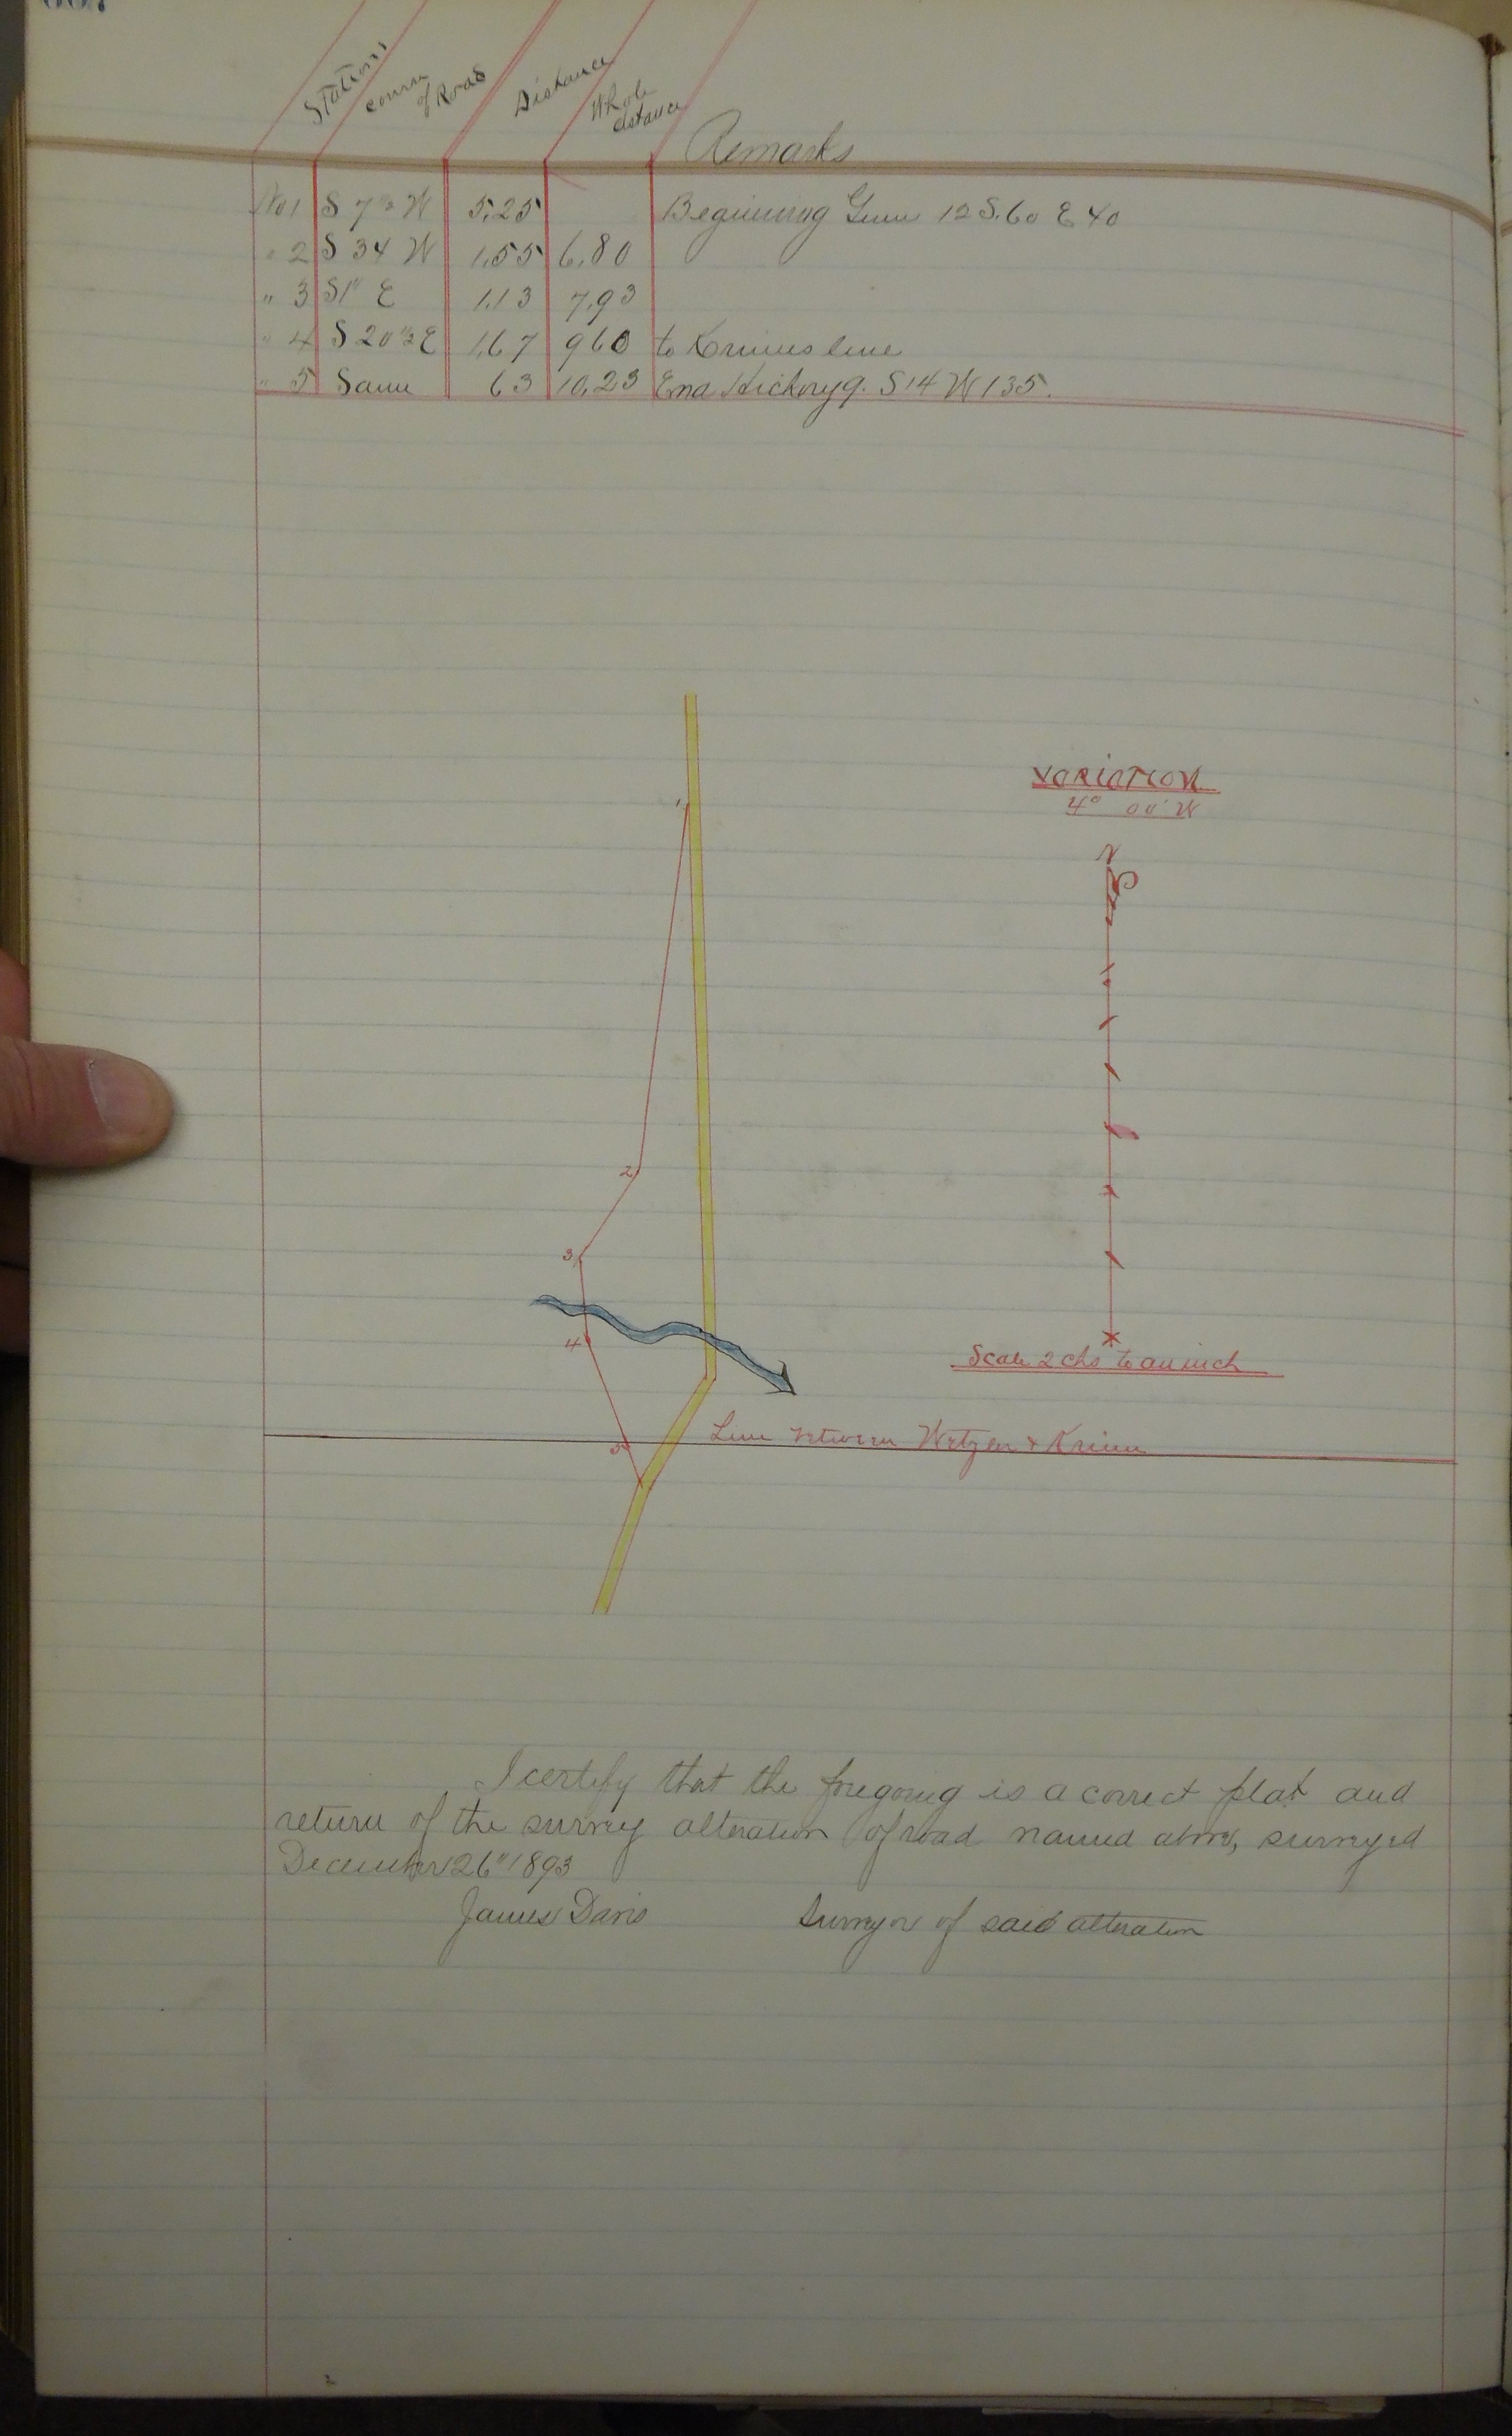 Stations
course of Road
Distance
Whole distance
Remarks
No 1 S 7½ W 5,25 Beginning Gum 12 S. 60 E 40
" 2 S 34 W 1,55 6,80
" 3 S 1° E 1,13 7,93
" 4 S 20½ E 1,67 960 to Krimes line
" 5 Same 63 10,23 End Hickory 9. S 14 W 135.
VARIATION
4° 00' W
N
1
2
3
4
5
Scale 2 chs to an inch
Line between & Krime
I certify that the foregoing is a correct plat and
return of the survey alteration of road named above, surveyed
December 26" 1893
James Davis Surveyor of said alteration